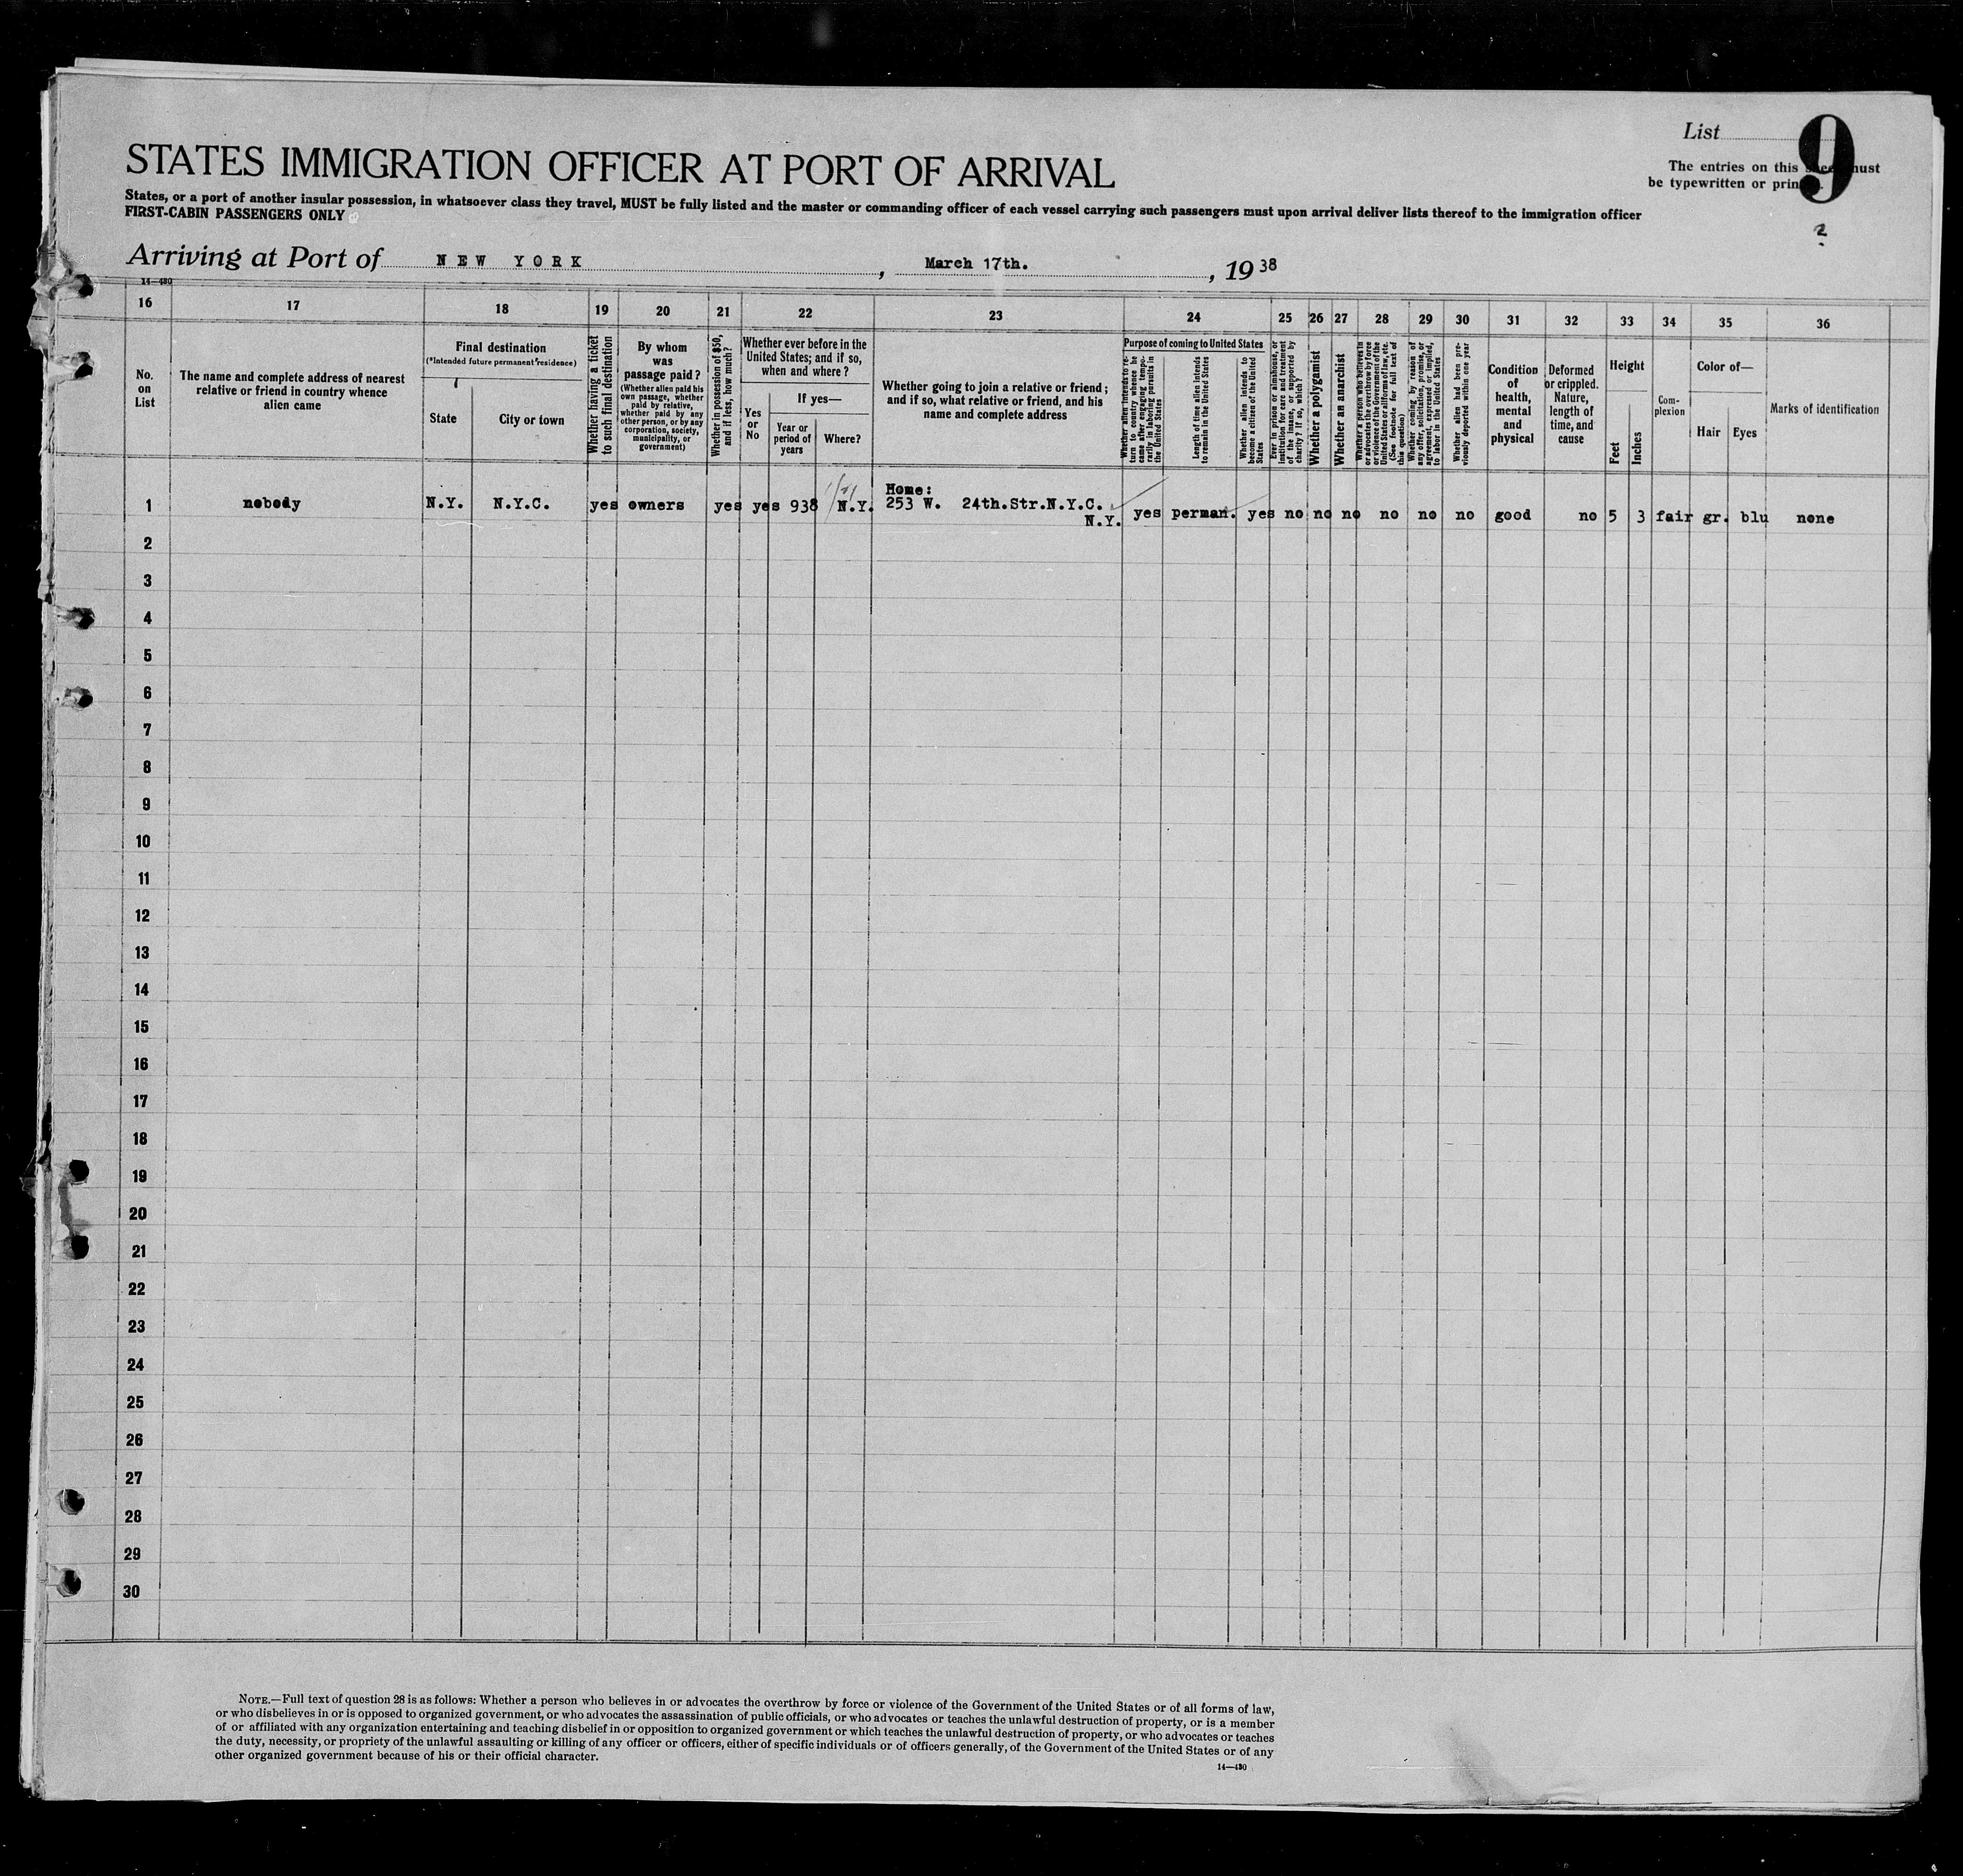 List 9
STATES IMMIGRATION OFFICER AT PORT OF ARRIVAL
The entries on this sheet must
be typewritten or printed.
States, or a port of another insular possession, in whatsoever class they travel, MUST be fully listed and the master or commanding officer of each vessel carrying such passengers must upon arrival deliver lists thereof to the immigration officer
FIRST-CABIN PASSENGERS ONLY
2
Arriving at Port of NEW YORK, March 17th., 1938
14—480
16 17 18 19 20 21 22 23 24 25 26 27 28 29 30 31 32 33 34 35 36
No.
on
List
The name and complete address of nearest
relative or friend in country whence
alien came
Final destination
(*Intended future permanent residence)
State
City or town
Whether having a ticket
to such final destination
By whom
was
passage paid?
(Whether alien paid his
own passage, whether
paid by relative,
whether paid by any
other person, or by any
corporation, society,
municipality, or
government)
Whether in possession of $50,
and if less, how much?
Whether ever before in the
United States; and if so,
when and where?
Yes
or
No
If yes—
Year or
period of
years
Where?
Whether going to join a relative or friend;
and if so, what relative or friend, and his
name and complete address
Purpose of coming to United States
Whether alien intends to re-
turn to country whence he
came after engaging tempo-
rarily in laboring pursuits in
the United States
Length of time alien intends
to remain in the United States
Whether alien intends to
become a citizen of the United
States
Ever in prison or almshouse, or
institution for care and treatment
of the insane, or supported by
charity? If so, which?
Whether a polygamist
Whether an anarchist
Whether a person who believes in
or advocates the overthrow by force
or violence of the Government of the
United States or all forms of law, etc.
(See footnote for full text of
this question)
Whether coming by reason of
any offer, solicitation, promise, or
agreement, expressed or implied,
to labor in the United States
Whether alien had been pre-
viously deported within one year
Condition
of
health,
mental
and
physical
Deformed
or crippled.
Nature,
length of
time, and
cause
Height
Feet
Inches
Com-
plexion
Color of—
Hair
Eyes
Marks of identification
Home:
1 nobody N.Y. N.Y.C. yes owners yes yes 938 N.Y. 253 W. 24th.Str.N.Y.C.
N.Y. yes perman. yes no no no no no no good no 5 3 fair gr. blu none
2
3
4
5
6
7
8
9
10
11
12
13
14
15
16
17
18
19
20
21
22
23
24
25
26
27
28
29
30
NOTE.—Full text of question 28 is as follows: Whether a person who believes in or advocates the overthrow by force or violence of the Government of the United States or of all forms of law,
or who disbelieves in or is opposed to organized government, or who advocates the assassination of public officials, or who advocates or teaches the unlawful destruction of property, or is a member
of or affiliated with any organization entertaining and teaching disbelief in or opposition to organized government or which teaches the unlawful destruction of property, or who advocates or teaches
the duty, necessity, or propriety of the unlawful assaulting or killing of any officer or officers, either of specific individuals or of officers generally, of the Government of the United States or of any
other organized government because of his or their official character.
14—480